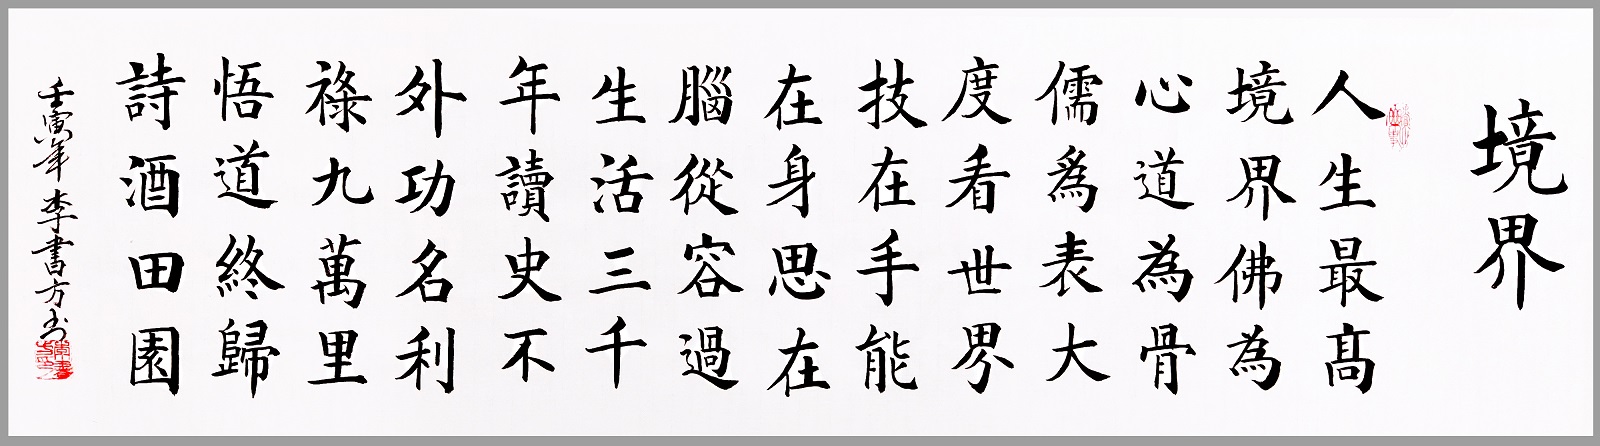 境界
人生最高
境界佛為
心道為骨
儒為表大
度看世界
技在手能
在身思在
腦從容過
生活三千
年讀史不
外功名利
祿九萬里
悟道終歸
詩酒田園
壬寅年李書方书